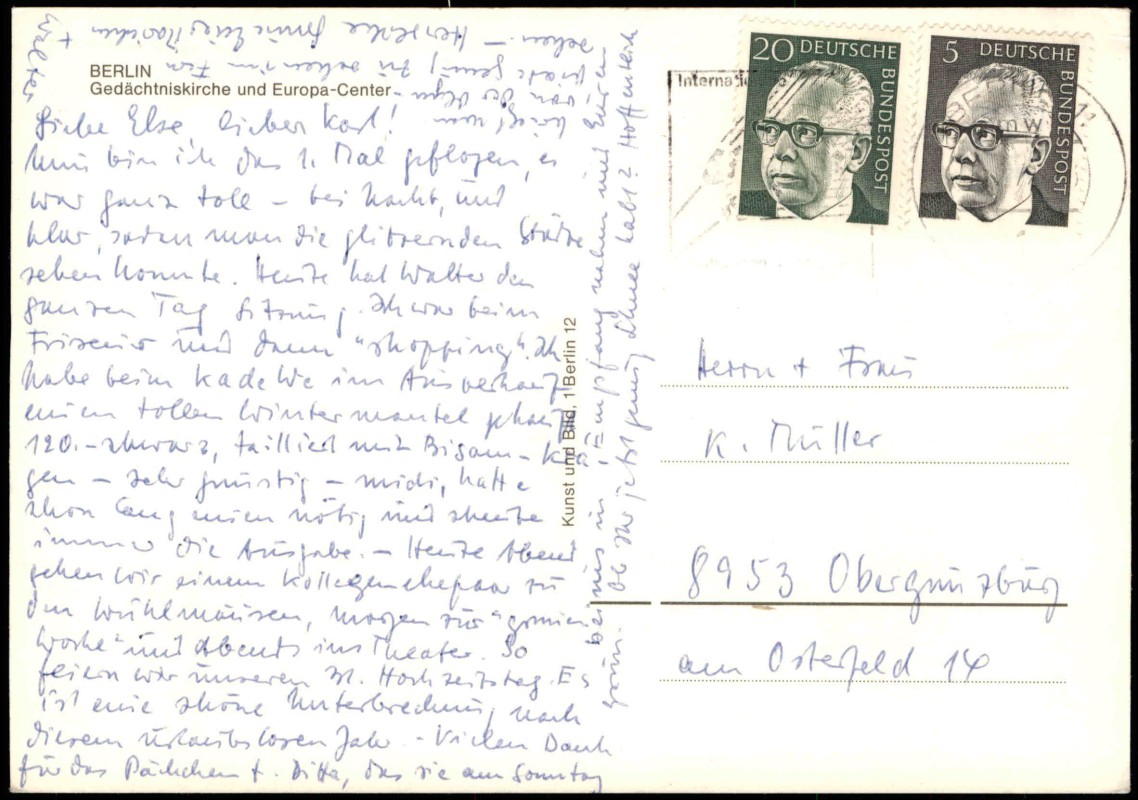 BERLIN
Gedächtniskirche und Europa-Center
Liebe Else, lieber Karl!
Nun bin ich das 1. Mal geflogen, es
war ganz toll – bei Nacht, und
klar, sodan man die glitzernden Städte
sehen konnte. Heute hat Walter den
ganzen Tag Sitzung. Ich war beim
Friseur und dann "shopping". Ich
habe beim KadeWe im Ausverkauf
einen tollen Wintermantel gekauft
120.- schwarz, tailliert mit Bisam-Kra
gen – sehr günstig – midi, hatte
schon lang einen nötig und scheute
immer die Ausgabe. – Heute Abend
gehen wir einem Kollegenehepaar zu
den Wühlmäusen, morgen zur "grünen
Woche" und Abends ins Theater. So
feiern wir unseren 31. Hochzeitstag. Es
ist eine schöne Unterbrechung nach
diesem urlaubslosen Jahr. – Vielen Dank
für das Päckchen + Bitte, das sie am Sonntag
bei uns in Empfang nahm mit Eurem
Ob Ihr jetzt genug Schnee habt? Hoffentlich
kriegt man von der
genug zu sehen im Fern
sehen. – Herzliche Grüsse
Walter
Kunst und Bild, 1 Berlin 12
Internatio
20 DEUTSCHE BUNDESPOST
5 DEUTSCHE BUNDESPOST
Herrn + Frau
K. Müller
8953 Obergünzburg
am Osterfeld 14